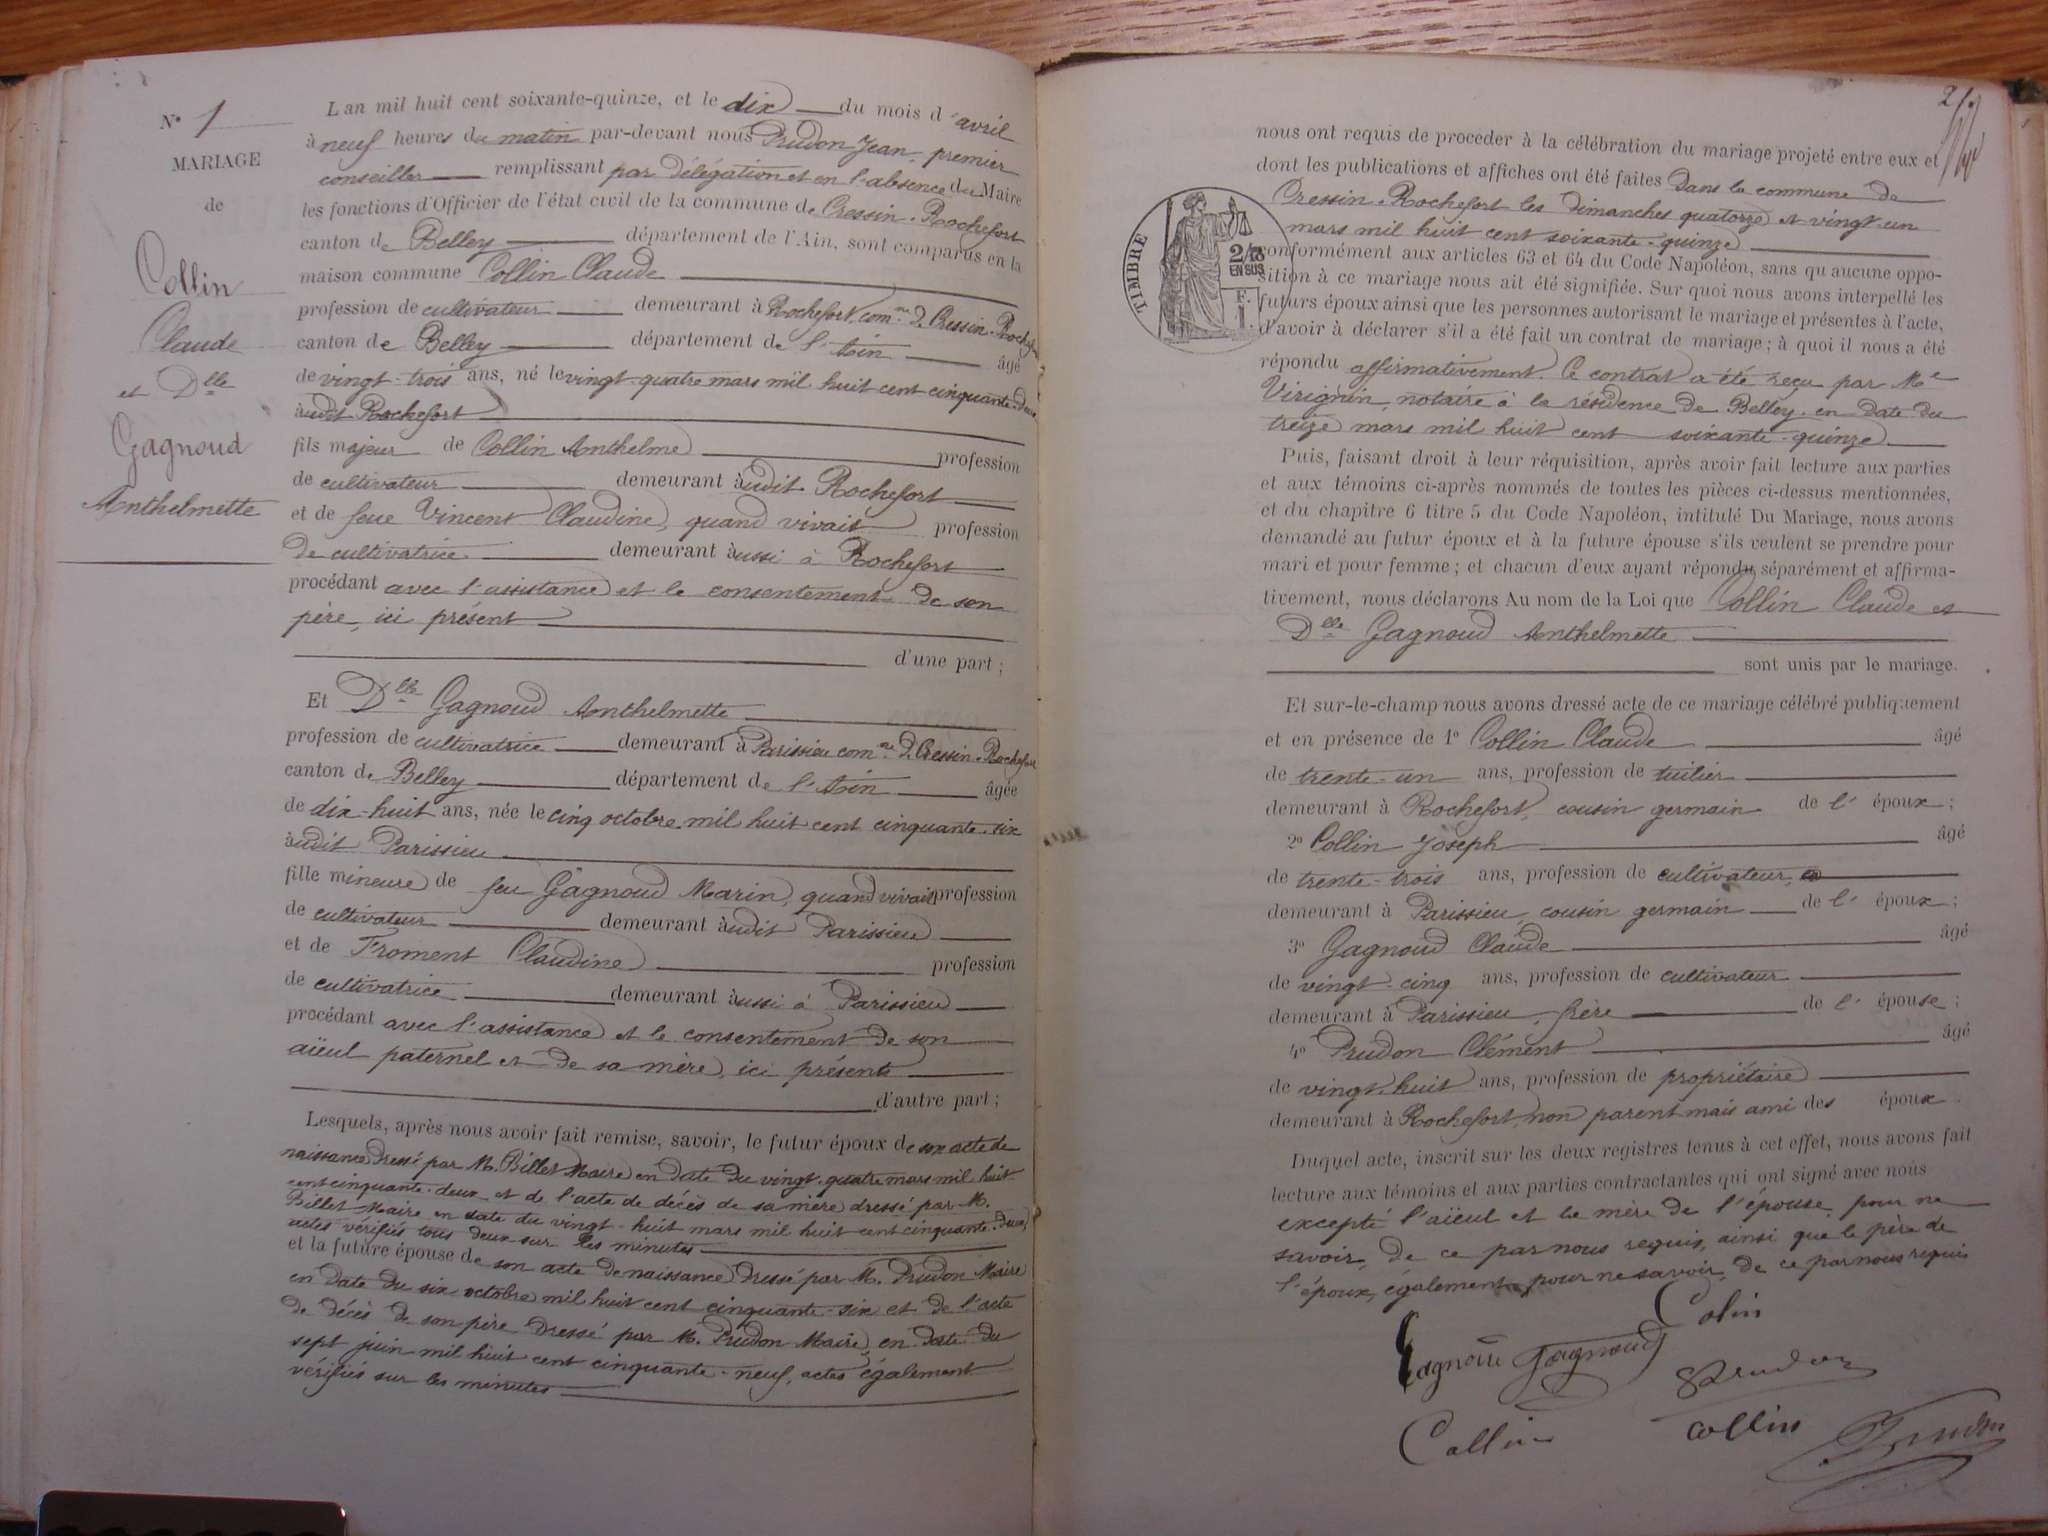 N° 1
MARIAGE
de
Collin
Claude
et Dlle
Gagnoud
Anthelmette
L an mil huit cent soixante-quinze, et le dix du mois d'avril
à neuf heures du matin par-devant nous Prudon Jean, premier
conseiller remplissant par délégation et en l'absence du Maire
les fonctions d'Officier de l'état civil de la commune de Cressin-Rochefort
canton de Belley département de l'Ain, sont comparus en la
maison commune Collin Claude
profession de cultivateur demeurant à Rochefort, comne de Cressin-Rochefort
canton de Belley département de l'Ain âgé
de vingt-trois ans, né le vingt-quatre mars mil huit cent cinquante-deux
àudit Rochefort
fils majeur de Collin Anthelme profession
de cultivateur demeurant àudit Rochefort
et de feue Vincent Claudine, quand vivait profession
de cultivatrice demeurant àussi à Rochefort
procédant avec l'assistance et le consentement de son
père, ici présent
d'une part ;
Et Dlle Gagnoud Anthelmette
profession de cultivatrice demeurant à Parissieu comne de Cressin-Rochefort
canton de Belley département de l'Ain âgée
de dix-huit ans, née le cinq octobre mil huit cent cinquante-six
àudit Parissieu
fille mineure de feu Gagnoud Marin, quand vivait profession
de cultivateur demeurant àudit Parissieu
et de Froment Claudine profession
de cultivatrice demeurant àussi à Parissieu
procédant avec l'assistance et le consentement de son
aïeul paternel et de sa mère, ici présents
d'autre part ;
Lesquels, après nous avoir fait remise, savoir, le futur époux de son acte de
naissance dressé par M. Billet Maire en date du vingt-quatre mars mil huit
cent cinquante-deux et de l'acte de décès de sa mère dressé par M.
Billet Maire en date du vingt-huit mars mil huit cent cinquante-deux,
actes vérifiés tous deux sur les minutes
et la future épouse de son acte de naissance dressé par M. Prudon Maire
en date du six octobre mil huit cent cinquante-six et de l'acte
de décès de son père dressé par M. Prudon Maire, en date du
sept juin mil huit cent cinquante-neuf, actes également
vérifiés sur les minutes
21.
nous ont requis de proceder à la célébration du mariage projeté entre eux et
dont les publications et affiches ont été faites dans la commune de
Cressin-Rochefort les dimanches quatorze et vingt-un
mars mil huit cent soixante-quinze
TIMBRE
2/10
EN SUS
F.
1.
conformément aux articles 63 et 64 du Code Napoléon, sans qu aucune oppo-
sition à ce mariage nous ait été signifiée. Sur quoi nous avons interpellé les
futurs époux ainsi que les personnes autorisant le mariage et présentes à l'acte,
d'avoir à déclarer s'il a été fait un contrat de mariage ; à quoi il nous a été
répondu affirmativement. Ce contrat a été reçu par Me
Virignin, notaire à la résidence de Belley, en date du
treize mars mil huit cent soixante-quinze
Puis, faisant droit à leur réquisition, après avoir fait lecture aux parties
et aux témoins ci-après nommés de toutes les pièces ci-dessus mentionnées,
et du chapitre 6 titre 5 du Code Napoléon, intitulé Du Mariage, nous avons
demandé au futur époux et à la future épouse s'ils veulent se prendre pour
mari et pour femme ; et chacun d'eux ayant répondu séparément et affirma-
tivement, nous déclarons Au nom de la Loi que Collin Claude et
Dlle Gagnoud Anthelmette
sont unis par le mariage.
Et sur-le-champ nous avons dressé acte de ce mariage célébré publiquement
et en présence de 1° Collin Claude âgé
de trente-un ans, profession de tuilier
demeurant à Rochefort, cousin germain de l'époux ;
2° Collin Joseph âgé
de trente-trois ans, profession de cultivateur,
demeurant à Parissieu, cousin germain de l'époux ;
3° Gagnoud Claude âgé
de vingt-cinq ans, profession de cultivateur
demeurant à Parissieu, frère de l'épouse ;
4° Prudon Clément âgé
de vingt-huit ans, profession de propriétaire
demeurant à Rochefort, non parent mais ami des époux.
Duquel acte, inscrit sur les deux registres tenus à cet effet, nous avons fait
lecture aux témoins et aux parties contractantes qui ont signé avec nous
excepté l'aïeul et la mère de l'épouse pour ne
savoir, de ce par nous requis, ainsi que le père de
l'époux, également pour ne savoir, de ce par nous requis
Colin
Gagnoud Gagnoud
Prudon
Collin
Collin
Prudon